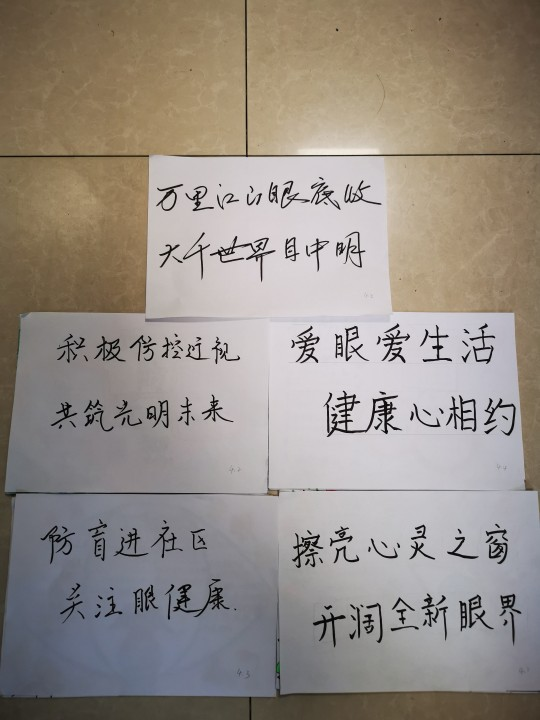 万里江山眼底收
大千世界目中明
积极防控近视
共筑光明未来
爱眼爱生活
健康心相约
防盲进社区
关注眼健康.
擦亮心灵之窗
开阔全新眼界